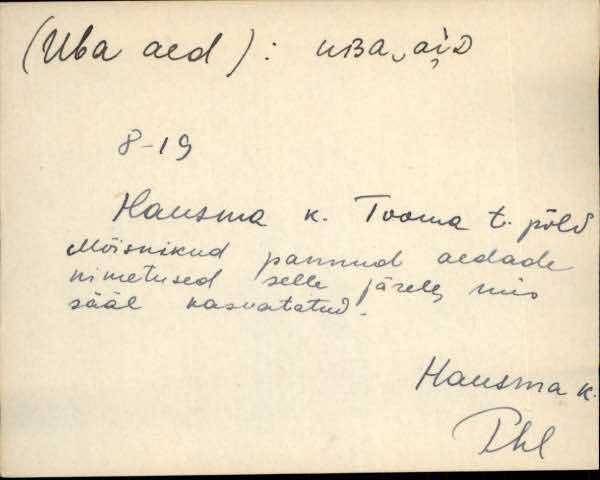 (Uba aed): uʙa‿ai̯D
8-19
Hausma k. Tooma t. põld
Mõisnikud pannud aedade
nimetused selle järele, mis
sääl kasvatatud.
Hausma k.
Phl